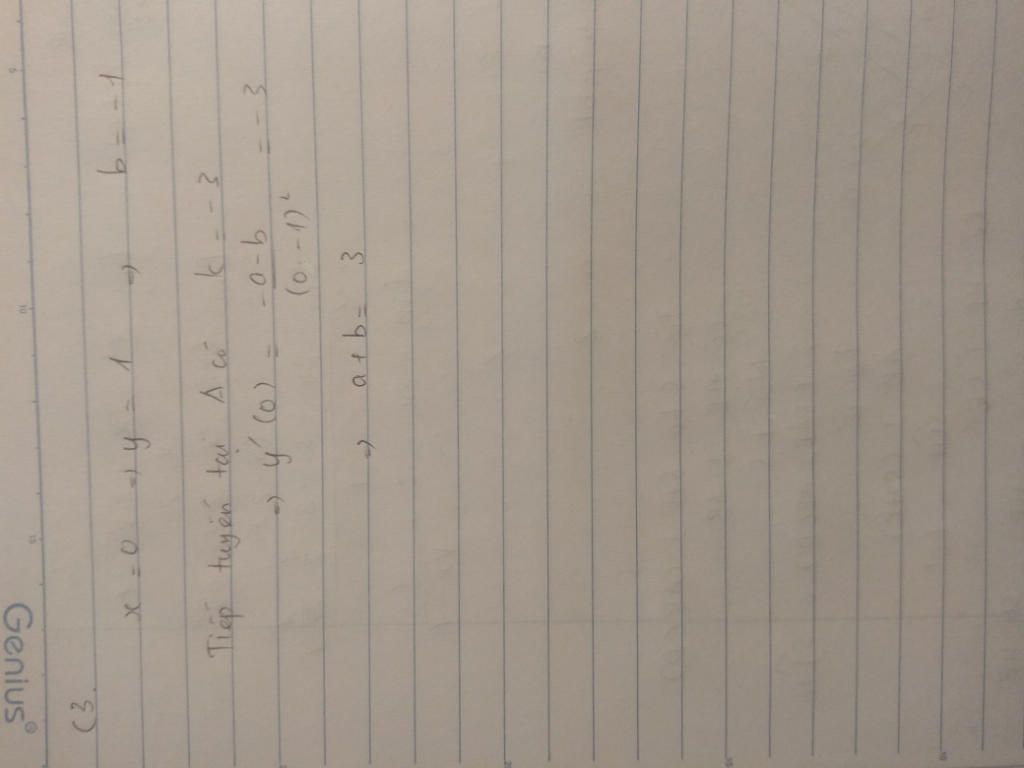 Genius
C3.
x = 0 => y = 1 => b = -1
Tiếp tuyến tại A có k = -3
=> y'(0) = \frac{-a-b}{(0-1)^2} = -3
=> a + b = 3